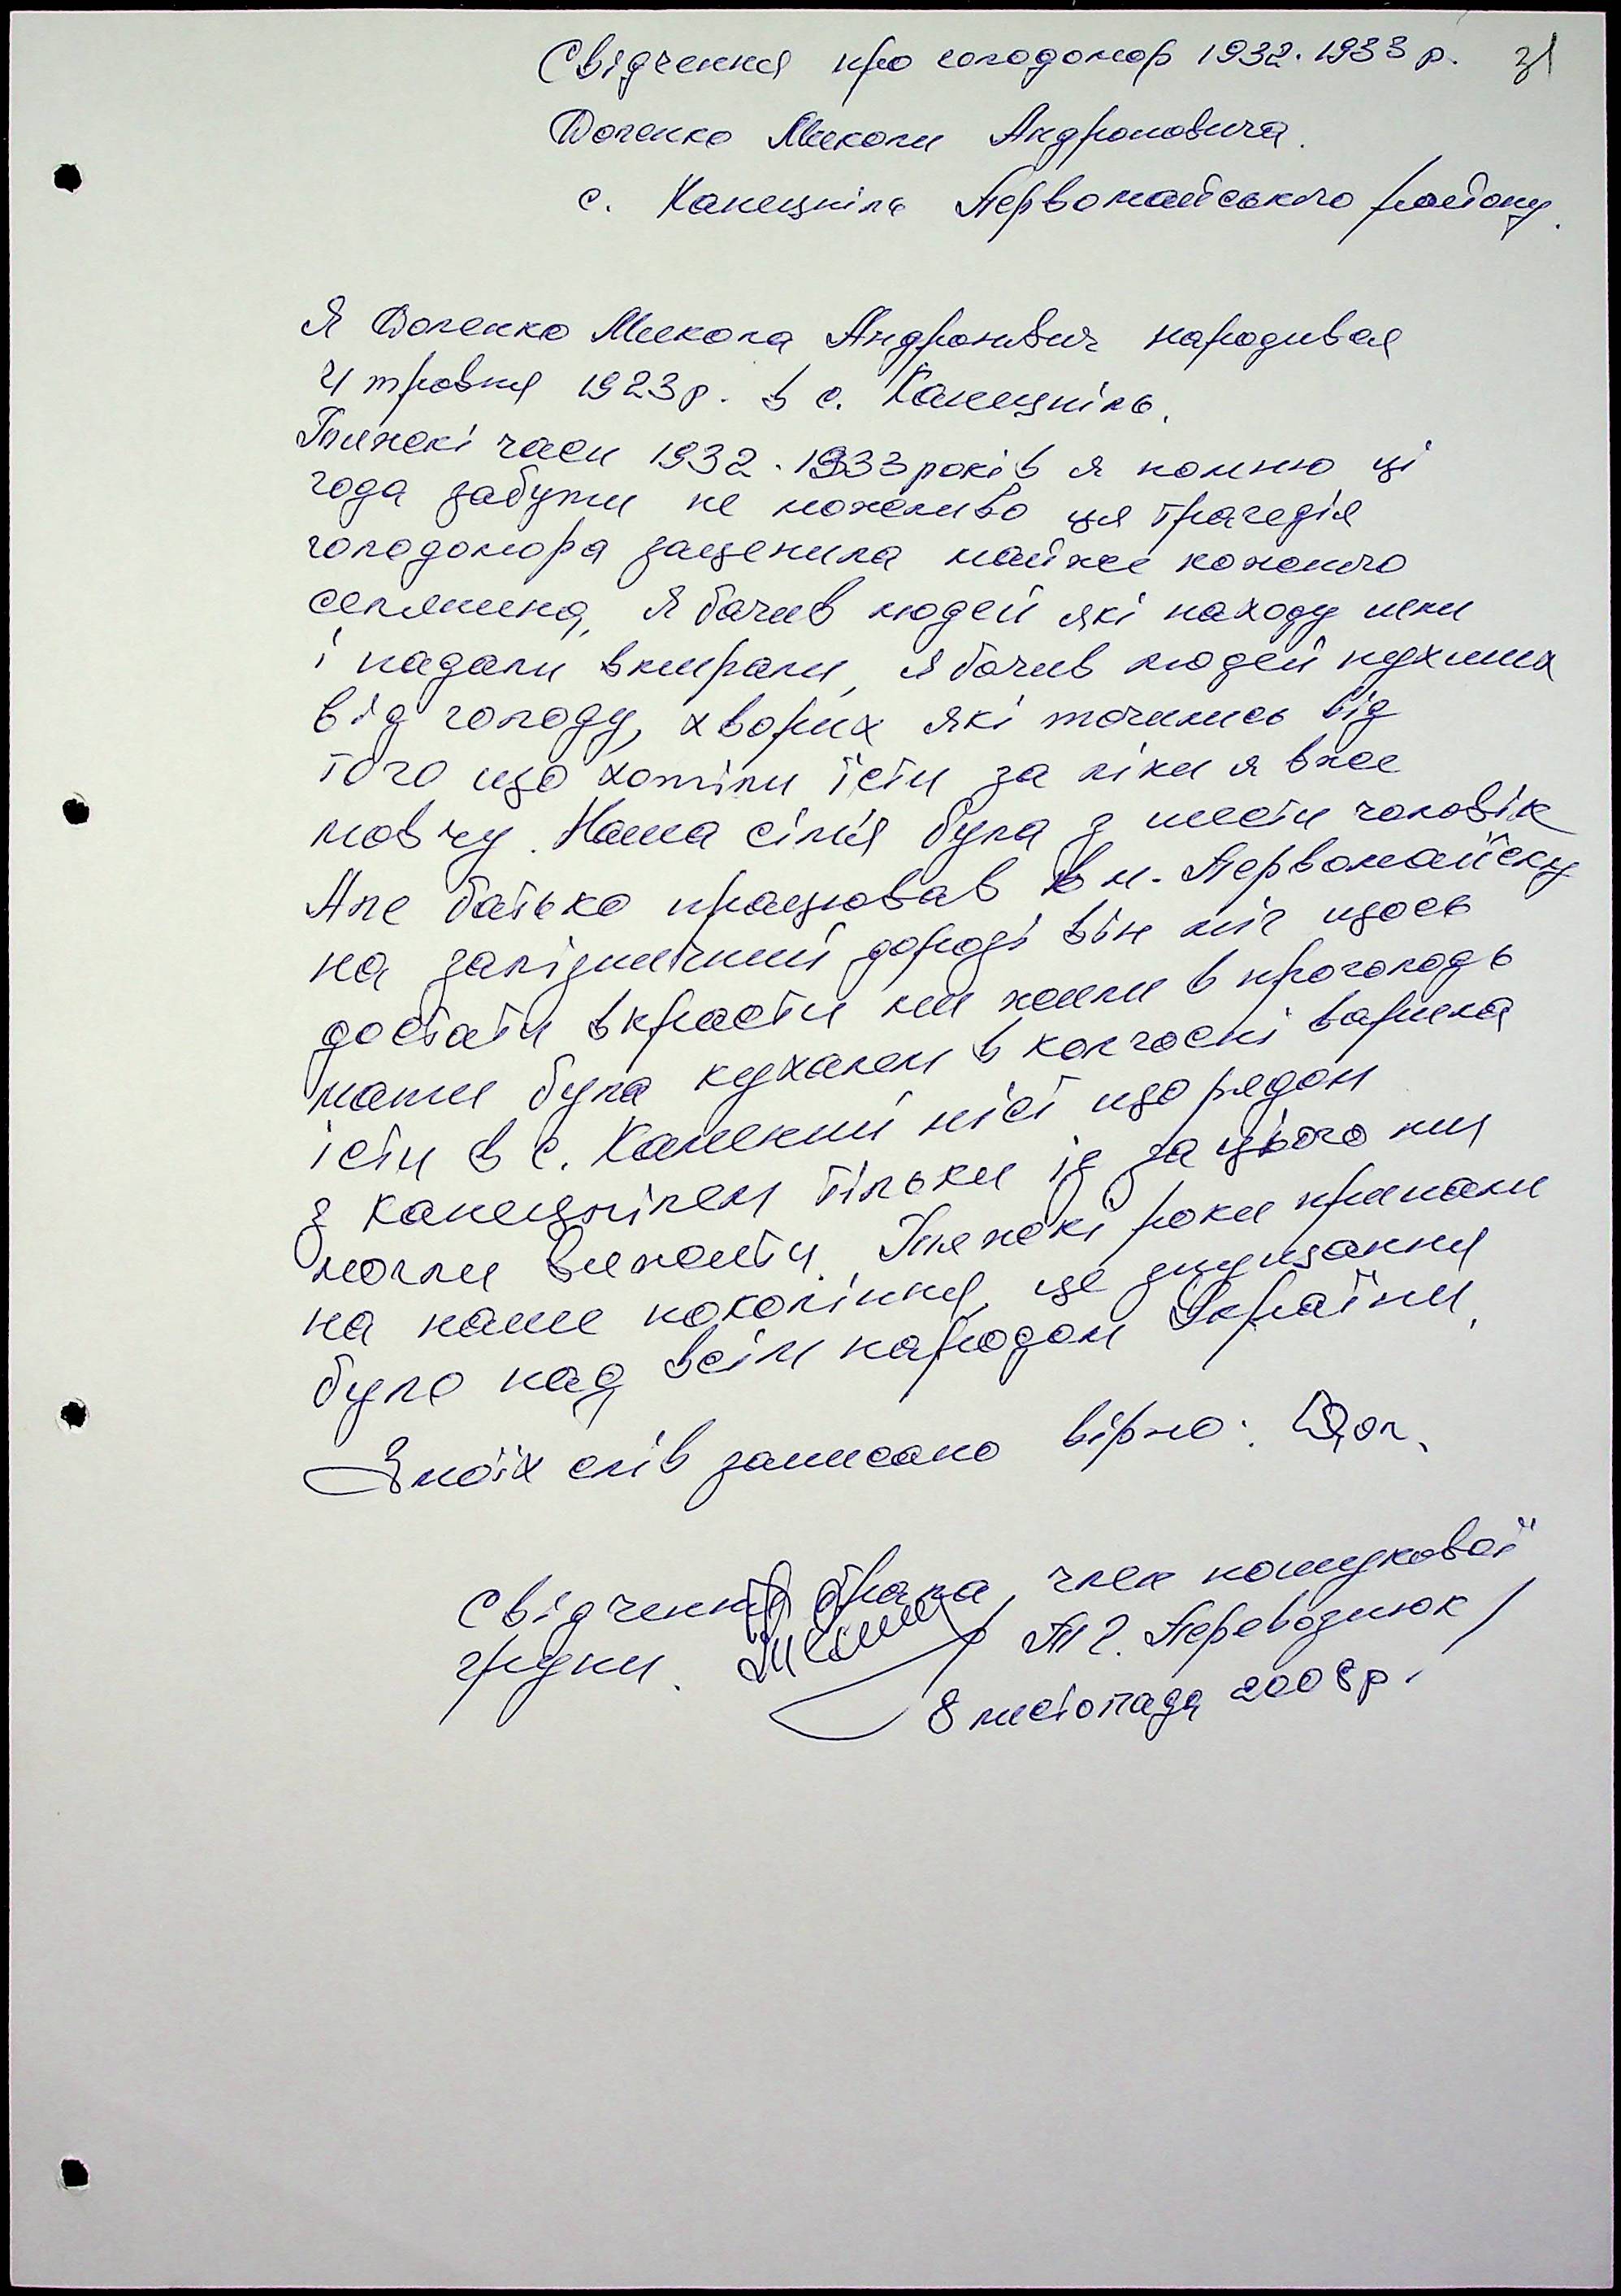 Свідчення про голодомор 1932. 1933 р. 31
Доленко Миколи Андроновича.
с. Конецпіль Первомайського району.
Я Доленко Микола Андронович народився
4 травня 1923 р. в с. Конецпіль.
Тяжекі часи 1932. 1933 років я помню ці
года забути не можеливо ця трагедія
голодомора зацепила майже кожного
селянина, я бачив людей які находу ишли
і падали вмирали, я бачив людей пухших
від голоду, хворих які мочились від
того що хотіли їсти за ліки я вже
мовчу. Наша сімія була з шести чоловік
Але батько працював в м. Первомайську
на залізничний дорозі він міг щось
достати вкрасти ми жили в проголодь
мати була кухарем в колгоспі варила
істи в с. Каменний місі що рядом
з Конецпілем тільки із за цього ми
могли вижити. Тяжекі роки припали
на наше покоління, це знущання
було над всім народом України.
З моїх слів записано вірно: Дол.
Свідчення брала, член пошукової
групи. / М Г. Переводнюк /
8 листопада 2008 р.